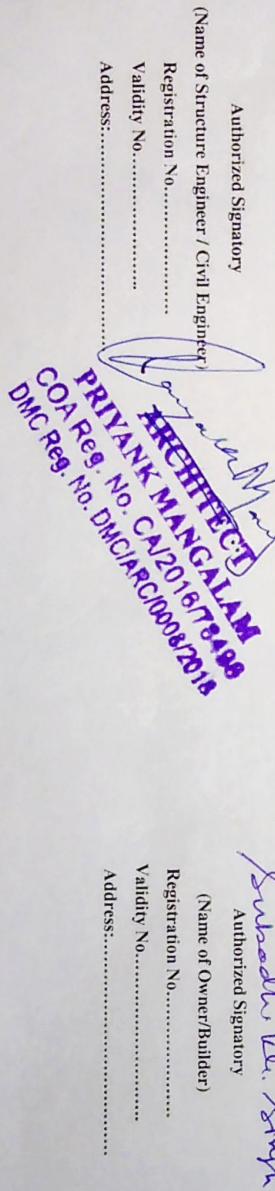 Authorized Signatory
(Name of Structure Engineer / Civil Engineer)
Registration No....................
Validity No....................
Address:........................................
ARCHITECT
PRIYANK MANGALAM
COA Reg. No. CA/2016/78498
DMC Reg. No. DMC/ARC/0008/2018
Subodh Kr. Singh
Authorized Signatory
(Name of Owner/Builder)
Registration No....................
Validity No........................
Address:........................................